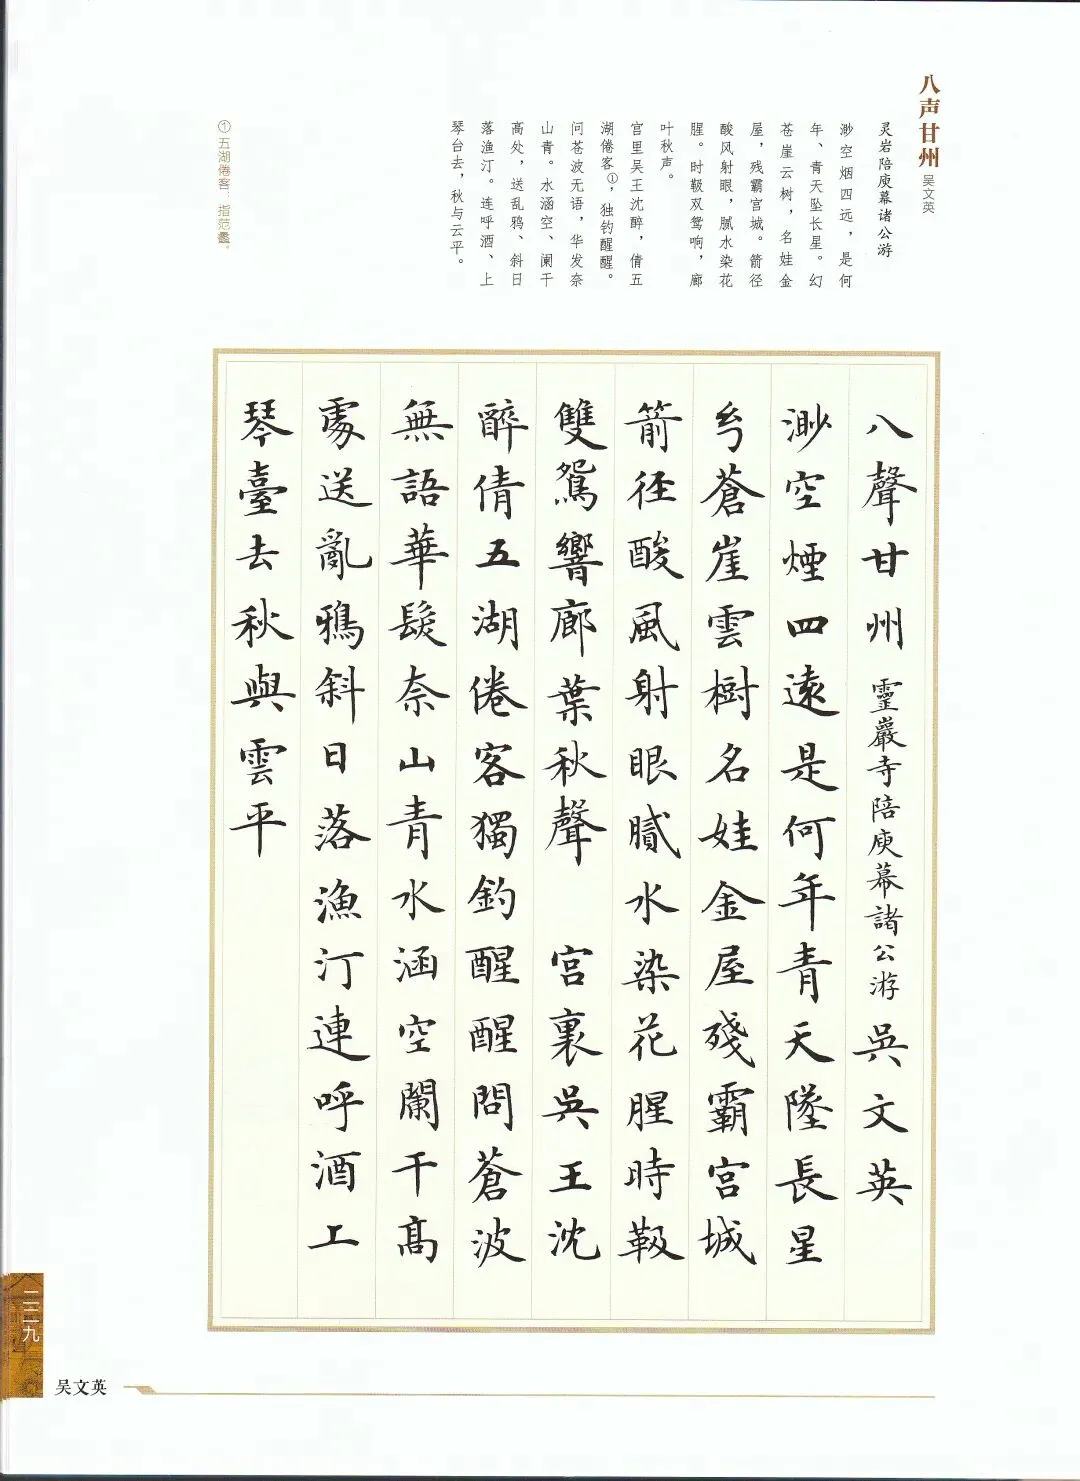 八声甘州 吴文英
灵岩陪庾幕诸公游
渺空烟四远，是何
年、青天坠长星。幻
苍崖云树，名娃金
屋，残霸宫城。箭径
酸风射眼，腻水染花
腥。时靸双鸳响，廊
叶秋声。
宫里吴王沈醉，倩五
湖倦客①，独钓醒醒。
问苍波无语，华发奈
山青。水涵空、阑干
高处，送乱鸦、斜日
落渔汀。连呼酒、上
琴台去，秋与云平。
①五湖倦客：指范蠡。
八聲甘州 靈巖寺陪庾幕諸公游 吳文英
渺空煙四遠是何年青天墜長星
幻蒼崖雲樹名娃金屋殘霸宮城
箭徑酸風射眼膩水染花腥時靸
雙鴛響廊葉秋聲 宮裏吳王沈
醉倩五湖倦客獨釣醒醒問蒼波
無語華髮奈山青水涵空闌干高
處送亂鴉斜日落漁汀連呼酒上
琴臺去秋與雲平
二二九
吴文英